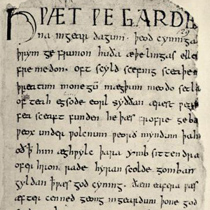 HǷÆT ǷE GARDE
na ingear dagum. þeod cyninga
þrym ge frunon huða æþelingas elle
fre medon. oft scyld scefing sceaþe
þreatum monegū mægþum meodo setla
of teah egsode eorl syððan ærest
fea sceaft funden he þæs frofre geba
ƿeox under ƿolcnum ƿeorð myndum þah
him æghƿylc þara ymb sittendra
ofer hron rade hyran scolde gomban
gyldan þ ƿæs god cyning. ðæm eafera ƿæs
æfter cenned geong ingeardum þone god